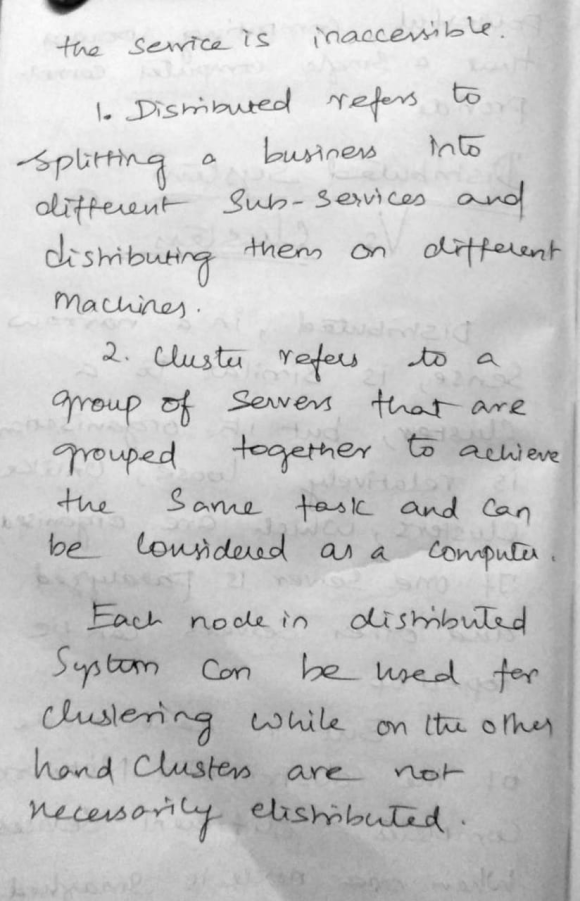 the service is inaccessible.
1. Distributed refers to
splitting a business into
different Sub-Services and
distributing them on different
Machines.
2. Cluster refers to a
group of Servers that are
grouped together to achieve
the Same task and can
be Considered as a computer.
Each node in distributed
System Can be used for
clustering while on the other
hand Clusters are not
necessarily distributed.